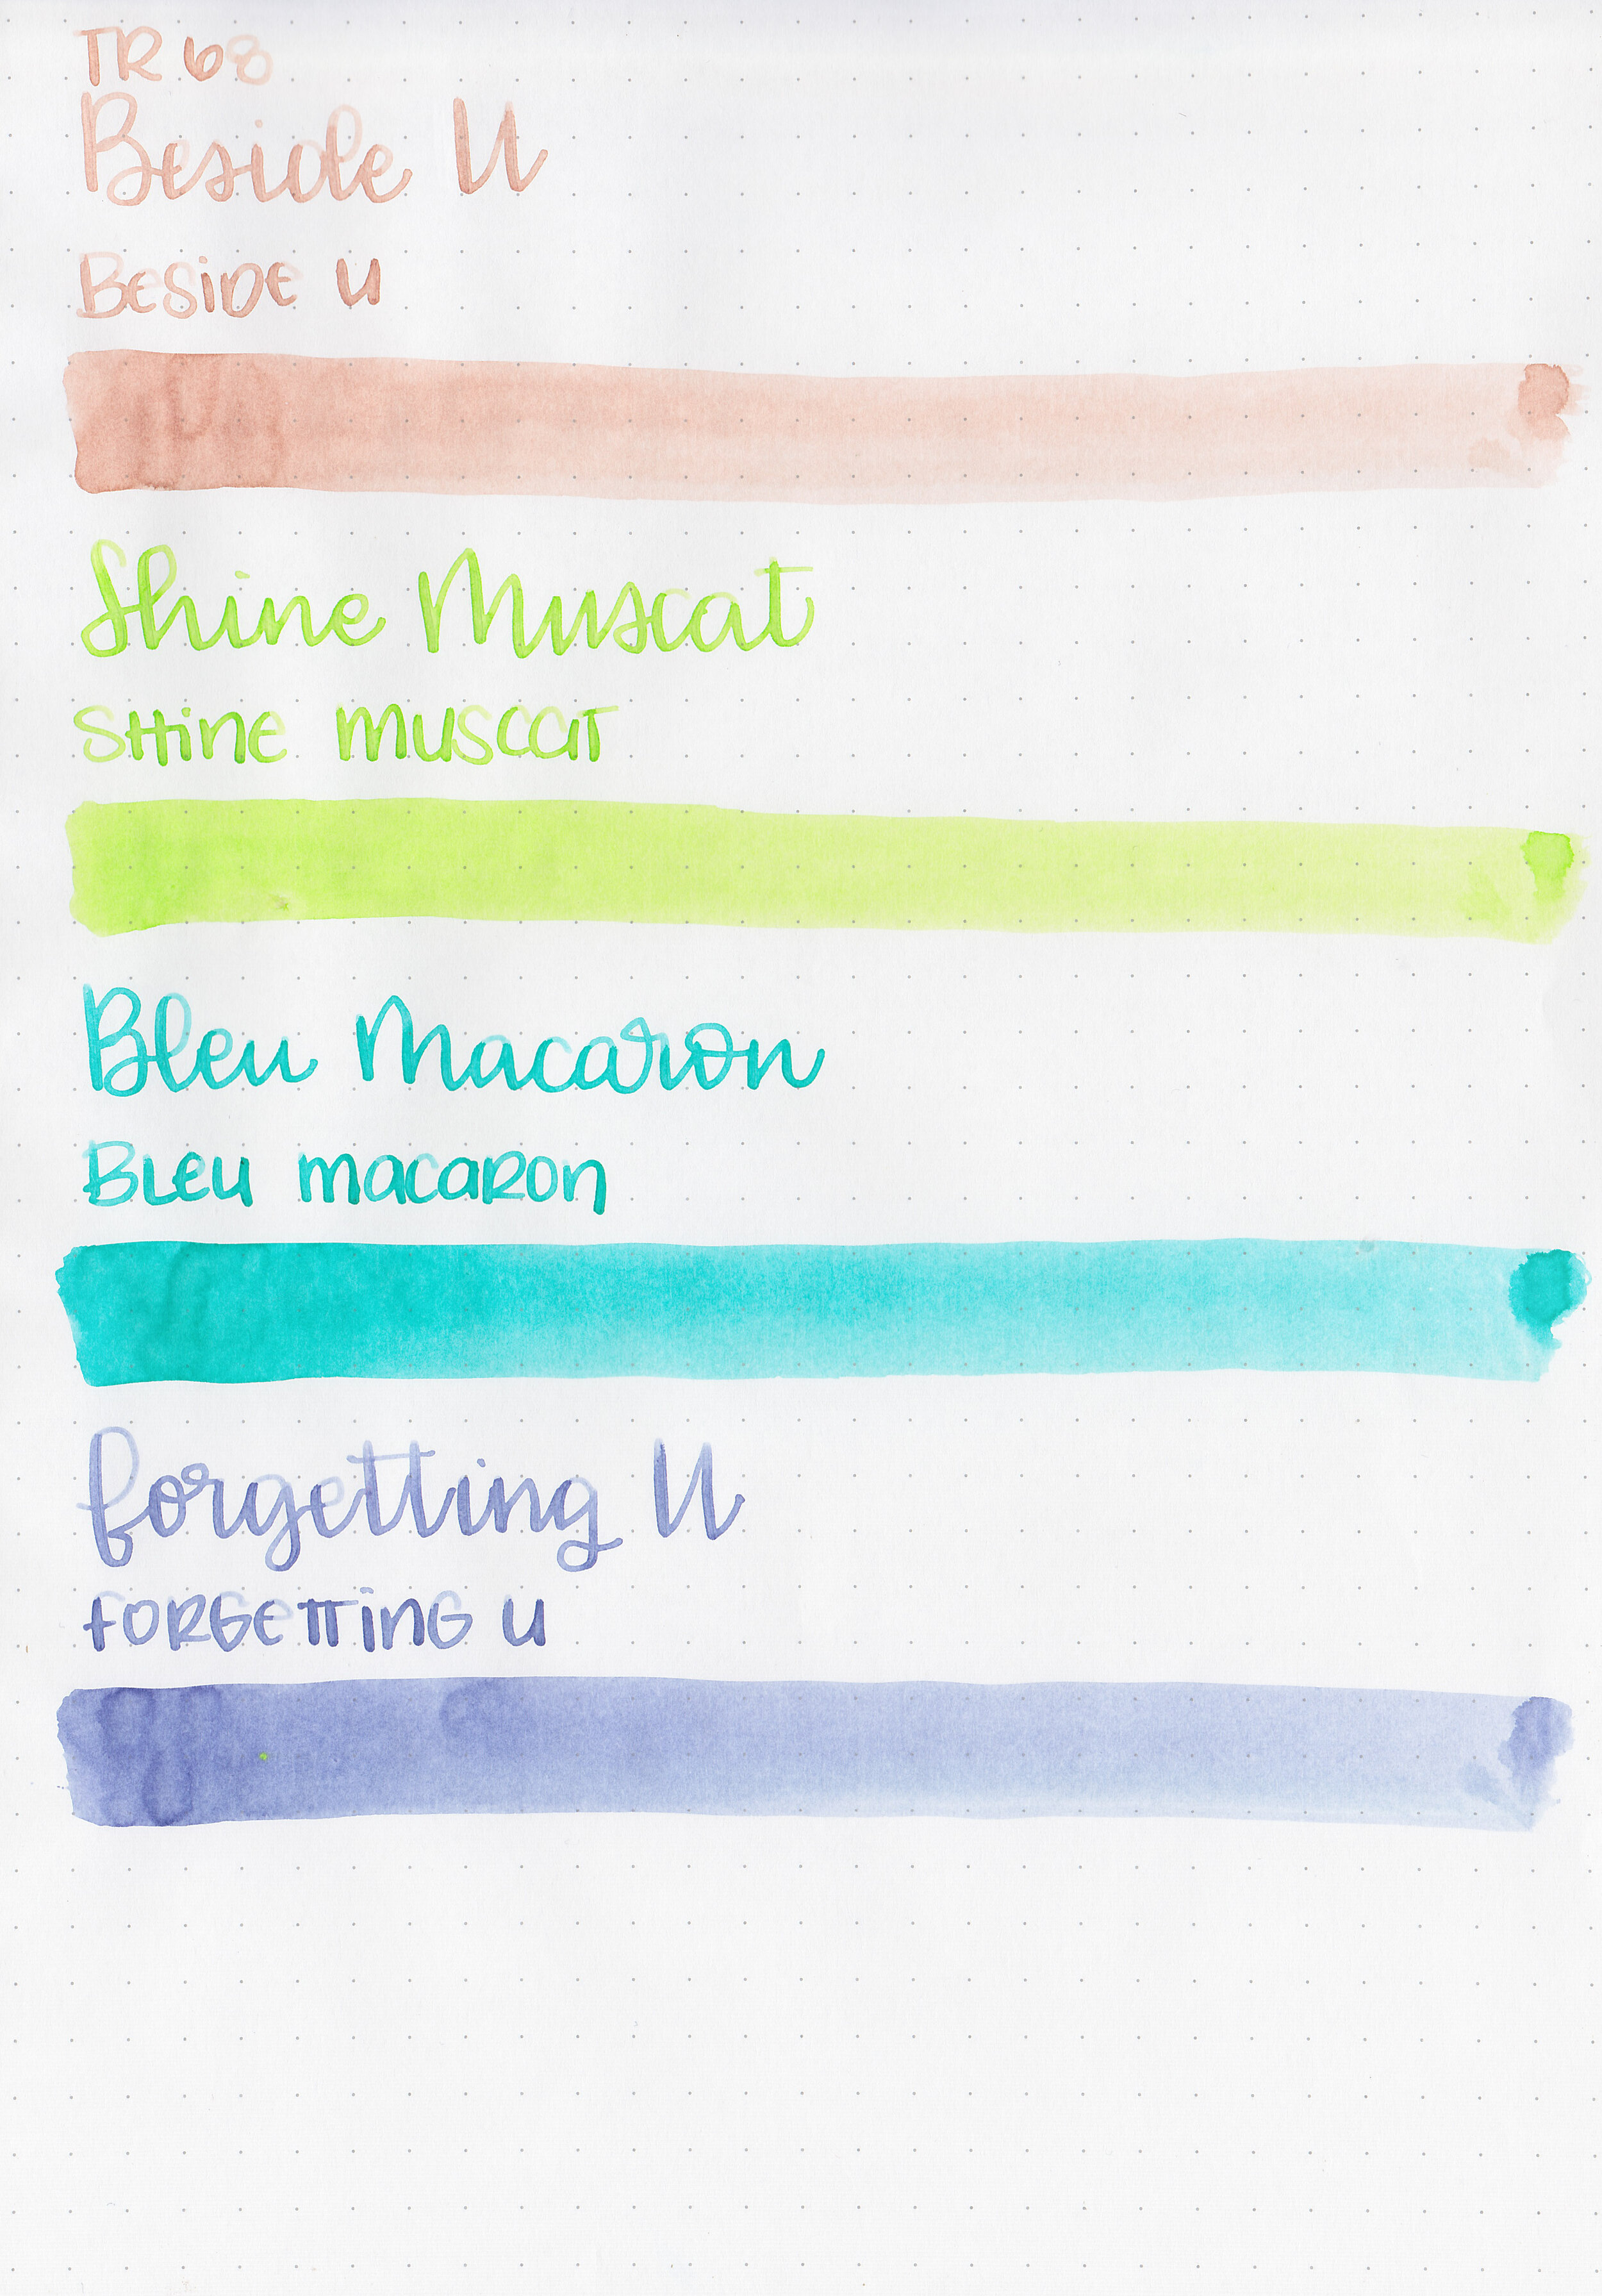 TR 68
Beside U
BESIDE U
Shine Muscat
SHINE MUSCAT
Bleu Macaron
BLEU MACARON
forgetting U
FORGETTING U